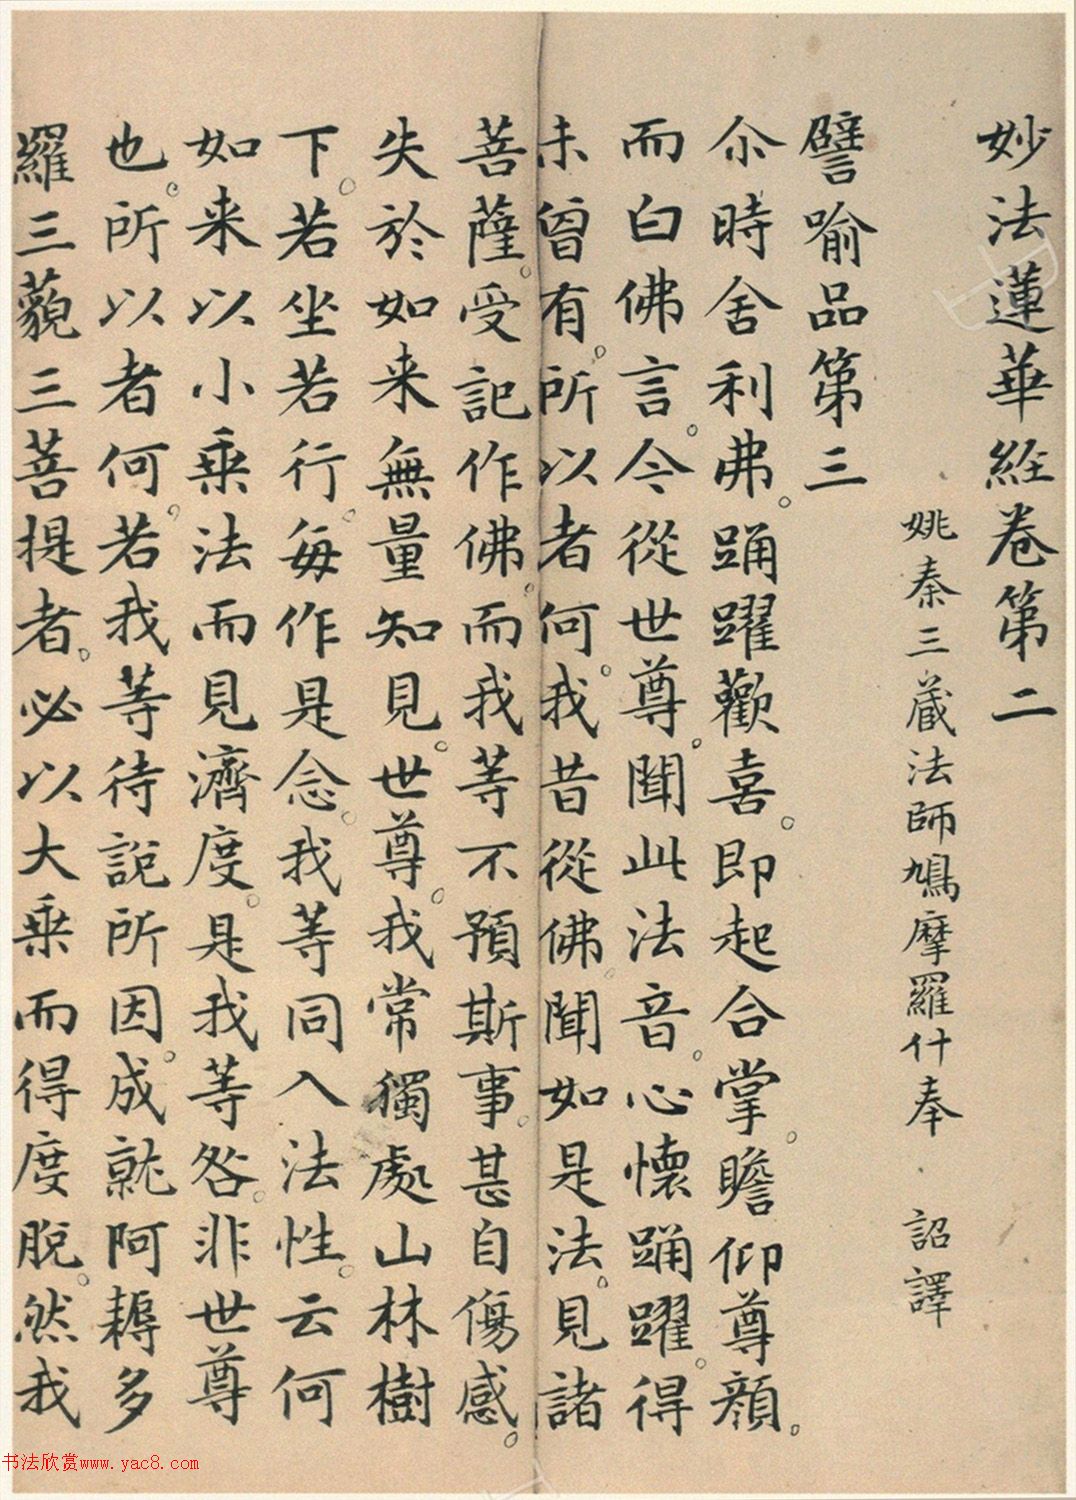 妙法蓮華經卷第二
姚秦三藏法師鳩摩羅什奉 詔譯
譬喻品第三
尒時舍利弗。踊躍歡喜。即起合掌。瞻仰尊顏。
而白佛言。今從世尊。聞此法音。心懷踊躍。得
未曾有。所以者何。我昔從佛。聞如是法。見諸
菩薩。受記作佛。而我等不預斯事。甚自傷感。
失於如来無量知見。世尊。我常獨處山林樹
下。若坐若行。每作是念。我等同入法性。云何
如来以小乘法而見濟度。是我等咎。非世尊
也。所以者何。若我等待說所因。成就阿耨多
羅三藐三菩提者。必以大乘而得度脫。然我
书法欣赏www.yac8.com